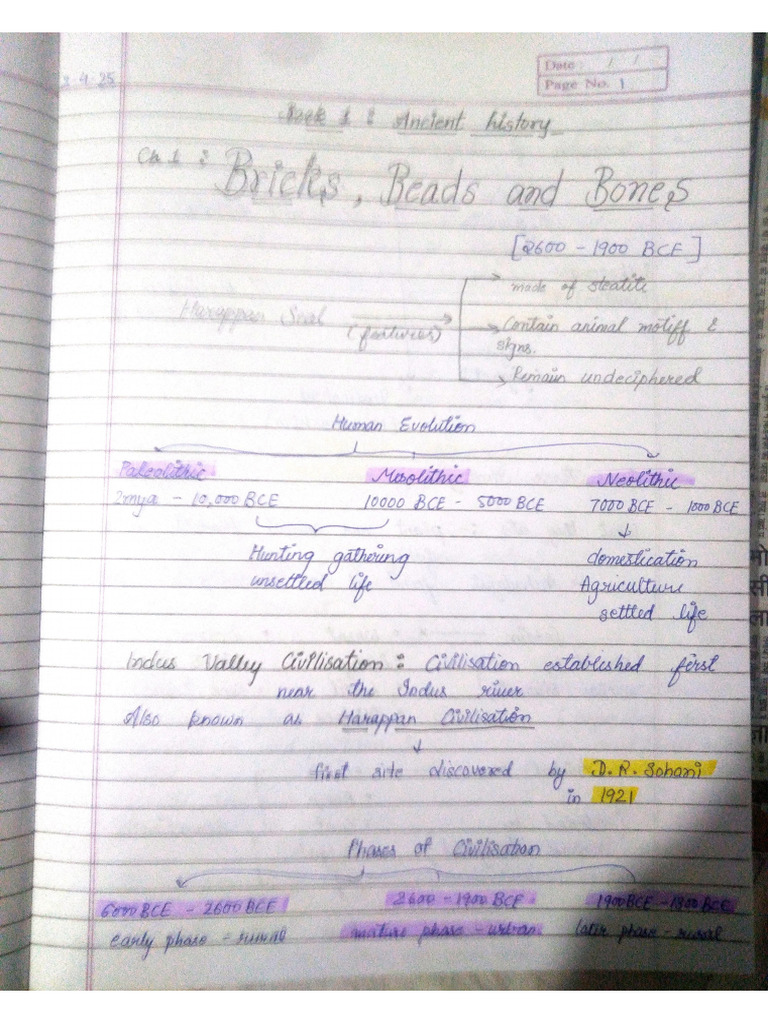 3-4-25
Date : / /
Page No. 1
Book 1 : Ancient history
Ch 1 : Bricks, Beads and Bones
[2600 - 1900 BCE]
made of steatite
Harappan Seal (features) Contain animal motiff &
signs.
Remain undeciphered
Human Evolution
Paleolithic Mesolithic Neolithic
2mya - 10,000 BCE 10000 BCE - 5000 BCE 7000 BCE - 1000 BCE
Hunting gathering domestication
unsettled life Agriculture
settled life
Indus Valley Civilisation : Civilisation established first
near the Indus river
Also known as Harappan Civilisation
first site discovered by D. R. Sohani
in 1921
Phases of Civilisation
6000 BCE - 2600 BCE 2600 - 1900 BCE 1900 BCE - 1300 BCE
early phase - rural mature phase - urban later phase - rural